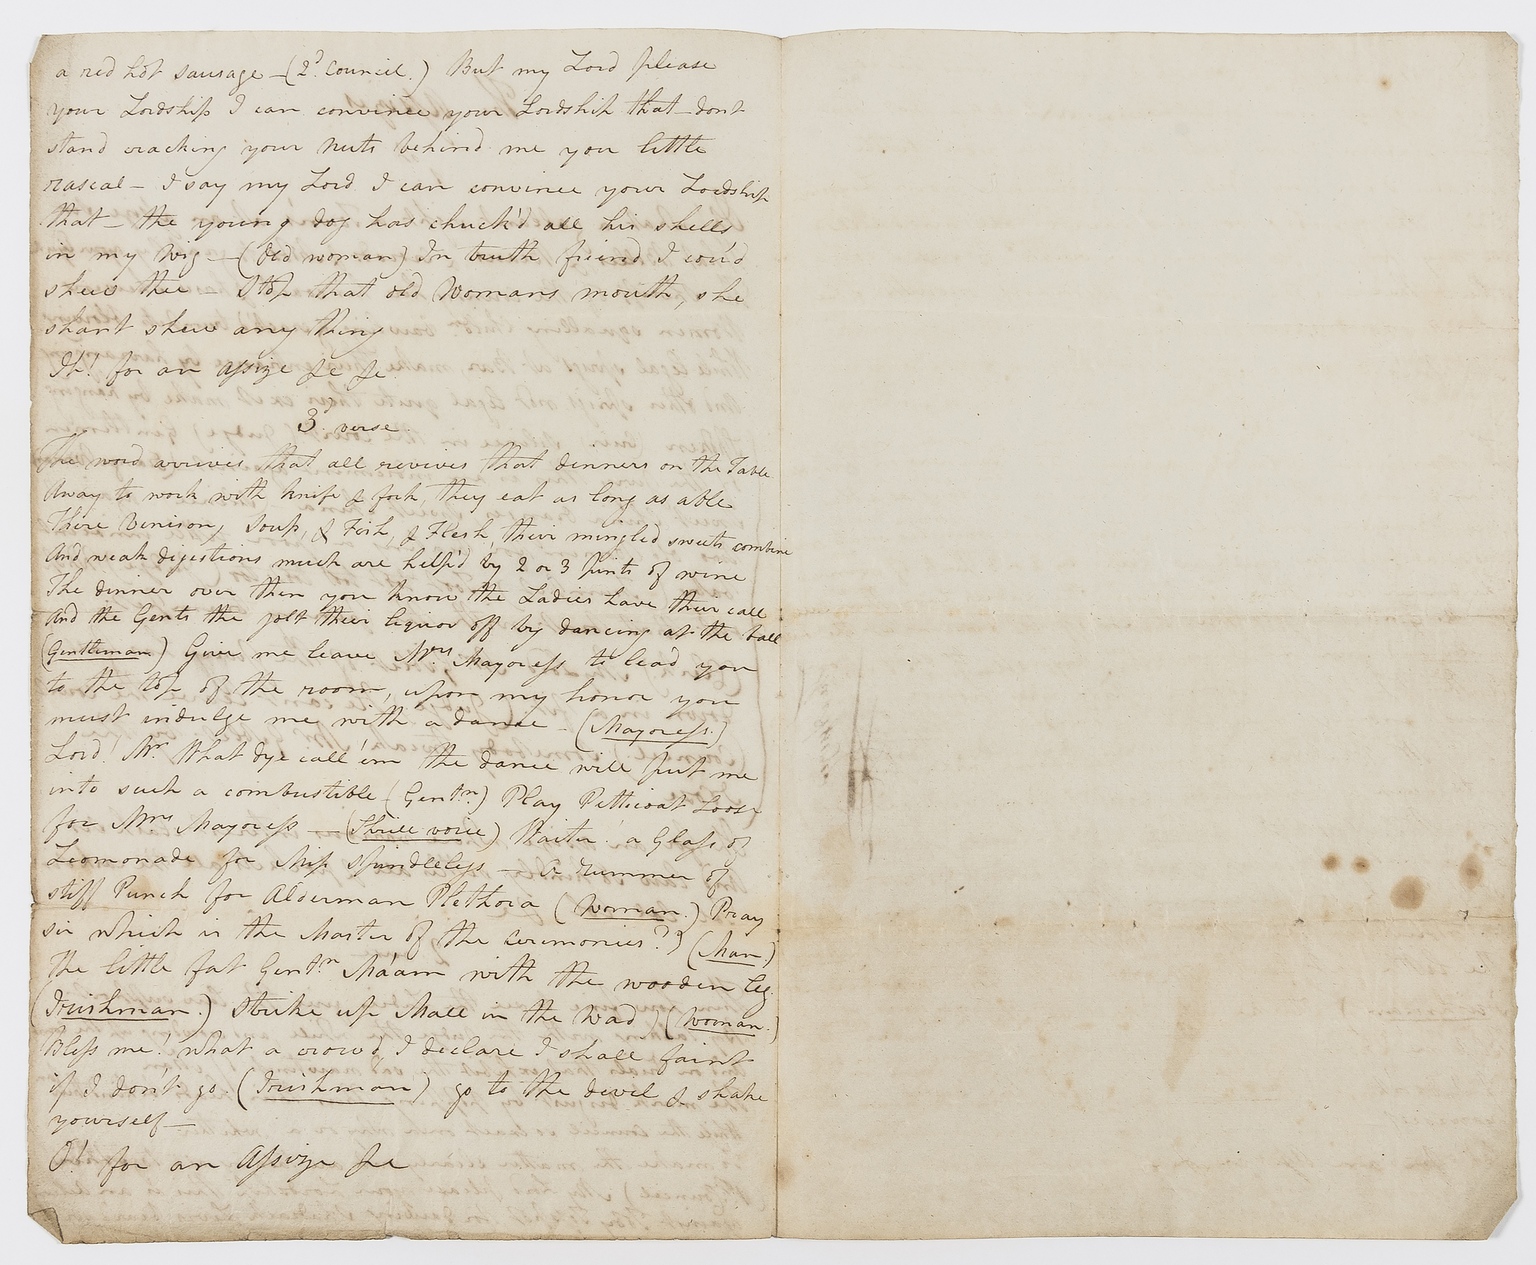 a red hot sausage - (2d. Council.) But my Lord please
your Lordship I can convince your Lordship that - dont
stand cracking your nuts behind me you little
rascal - I say my Lord I can convince your Lordship
that - the young dog has chuck'd all his shells
in my Wig - (Old woman) In truth friend I cou'd
shew thee - Stop that old Womans mouth, she
shant shew any thing
Oh! for an Assize &c &c
3d. verse.
The word arrives that all revives that dinners on the Table
Away to work with knife & fork, they eat as long as able
There Venison, Soup, & Fish, & Flesh, their mingled sweets combine
And weak digestions much are help'd by 2 or 3 pints of wine
The dinner over then you know the Ladies have their call
And the Gents the jolt their liquor off by dancing at the ball
(Gentleman) Give me leave Mrs Mayoress to lead you
to the top of the room, upon my honor you
must indulge me with a dance - (Mayoress.)
Lord! Mr What d'ye call'em the dance will put me
into such a combustible (Gentn.) Play Petticoat Loose
for Mrs Mayoress - (Shrill voice) Waiter! a Glass of
Leomonade for Miss Spindlelegs - A rummer of
stiff Punch for Alderman Plethora (Woman.) Pray
sir which is the Master of the Ceremonies?) (Man)
The little fat Gentn Ma'am with the wooden leg.
(Irishman.) Strike up Mall in the Wad) (Woman.)
Bless me! what a crowd, I declare I shall faint
if I don't go. (Irishman) go to the devil & shake
yourself -
O! for an Assize &c